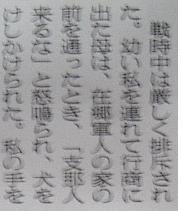 戦時中は厳しく排斥され
た。幼い私を連れて行商に
出た母は、在郷軍人の家の
前を通ったとき、「支那人
来るな」と怒鳴られ、犬を
けしかけられた。私の手を